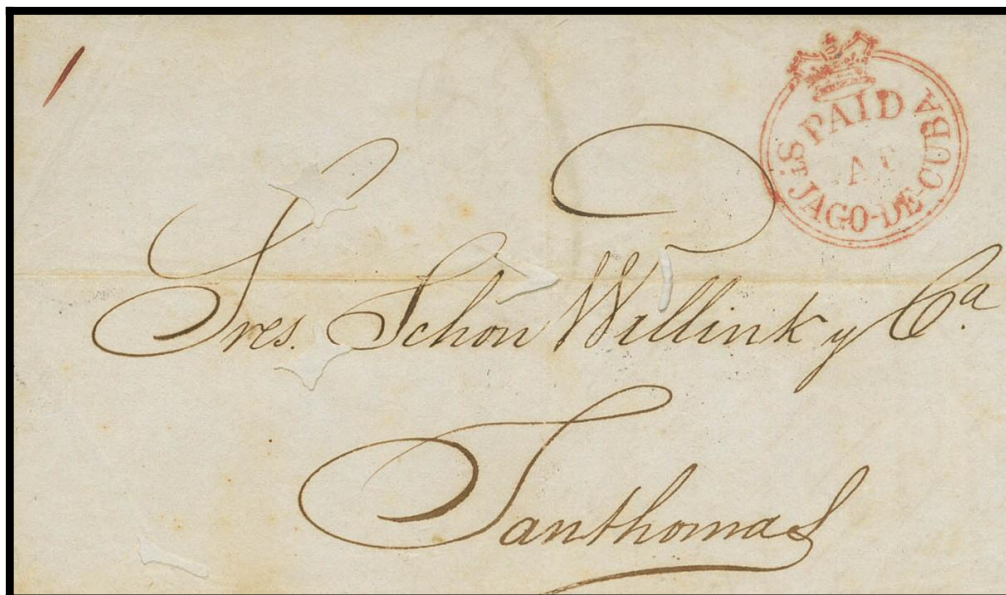 1
PAID
AT
ST JAGO-DE-CUBA
Sres. Schön Willink y Ca.
Santhomas